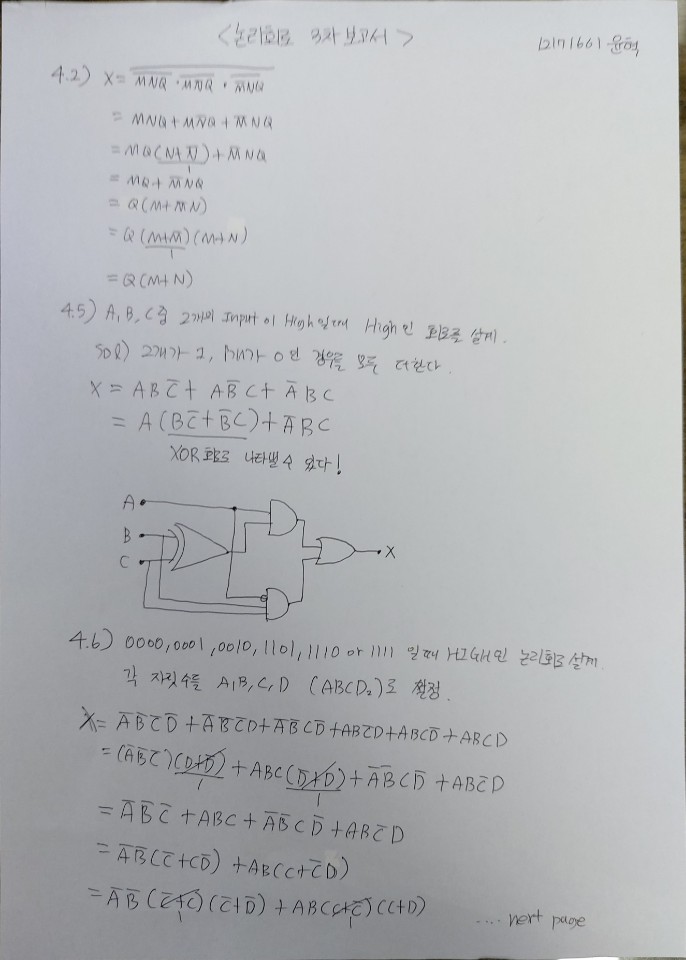 <논리회로 3차 보고서>
12171661 윤혁
4.2) X= \overline{\overline{MNQ}·\overline{M\overline{N}Q}·\overline{\overline{M}NQ}}
= MNQ+M\overline{N}Q+\overline{M}NQ
= MQ(N+\overline{N})+\overline{M}NQ
1
= MQ+\overline{M}NQ
= Q(M+\overline{M}N)
= Q(M+\overline{M})(M+N)
1
= Q(M+N)
4.5) A, B, C 중 2개의 Input이 High일때 High인 회로를 설계.
SOl) 2개가 1, 1개가 0인 경우를 모두 더한다.
X = AB\overline{C} + A\overline{B}C + \overline{A}BC
= A(B\overline{C}+\overline{B}C)+\overline{A}BC
XOR회로로 나타낼 수 있다!
A
B
C
X
4.6) 0000,0001,0010,1101,1110 or 1111 일때 HIGH인 논리회로 설계.
각 자릿수를 A,B,C,D (ABCD₂)로 설정.
X= \overline{A}\overline{B}\overline{C}\overline{D}+\overline{A}\overline{B}\overline{C}D+\overline{A}\overline{B}C\overline{D}+AB\overline{C}D+ABC\overline{D}+ABCD
=(\overline{A}\overline{B}\overline{C})(D+\overline{D})+ABC(\overline{D}+D)+\overline{A}\overline{B}C\overline{D}+AB\overline{C}D
1 1
= \overline{A}\overline{B}\overline{C}+ABC+\overline{A}\overline{B}C\overline{D}+AB\overline{C}D
= \overline{A}\overline{B}(\overline{C}+C\overline{D})+AB(C+\overline{C}D)
= \overline{A}\overline{B}(\overline{C}+C)(\overline{C}+\overline{D})+AB(C+\overline{C})(C+D)
1 1
.... next page